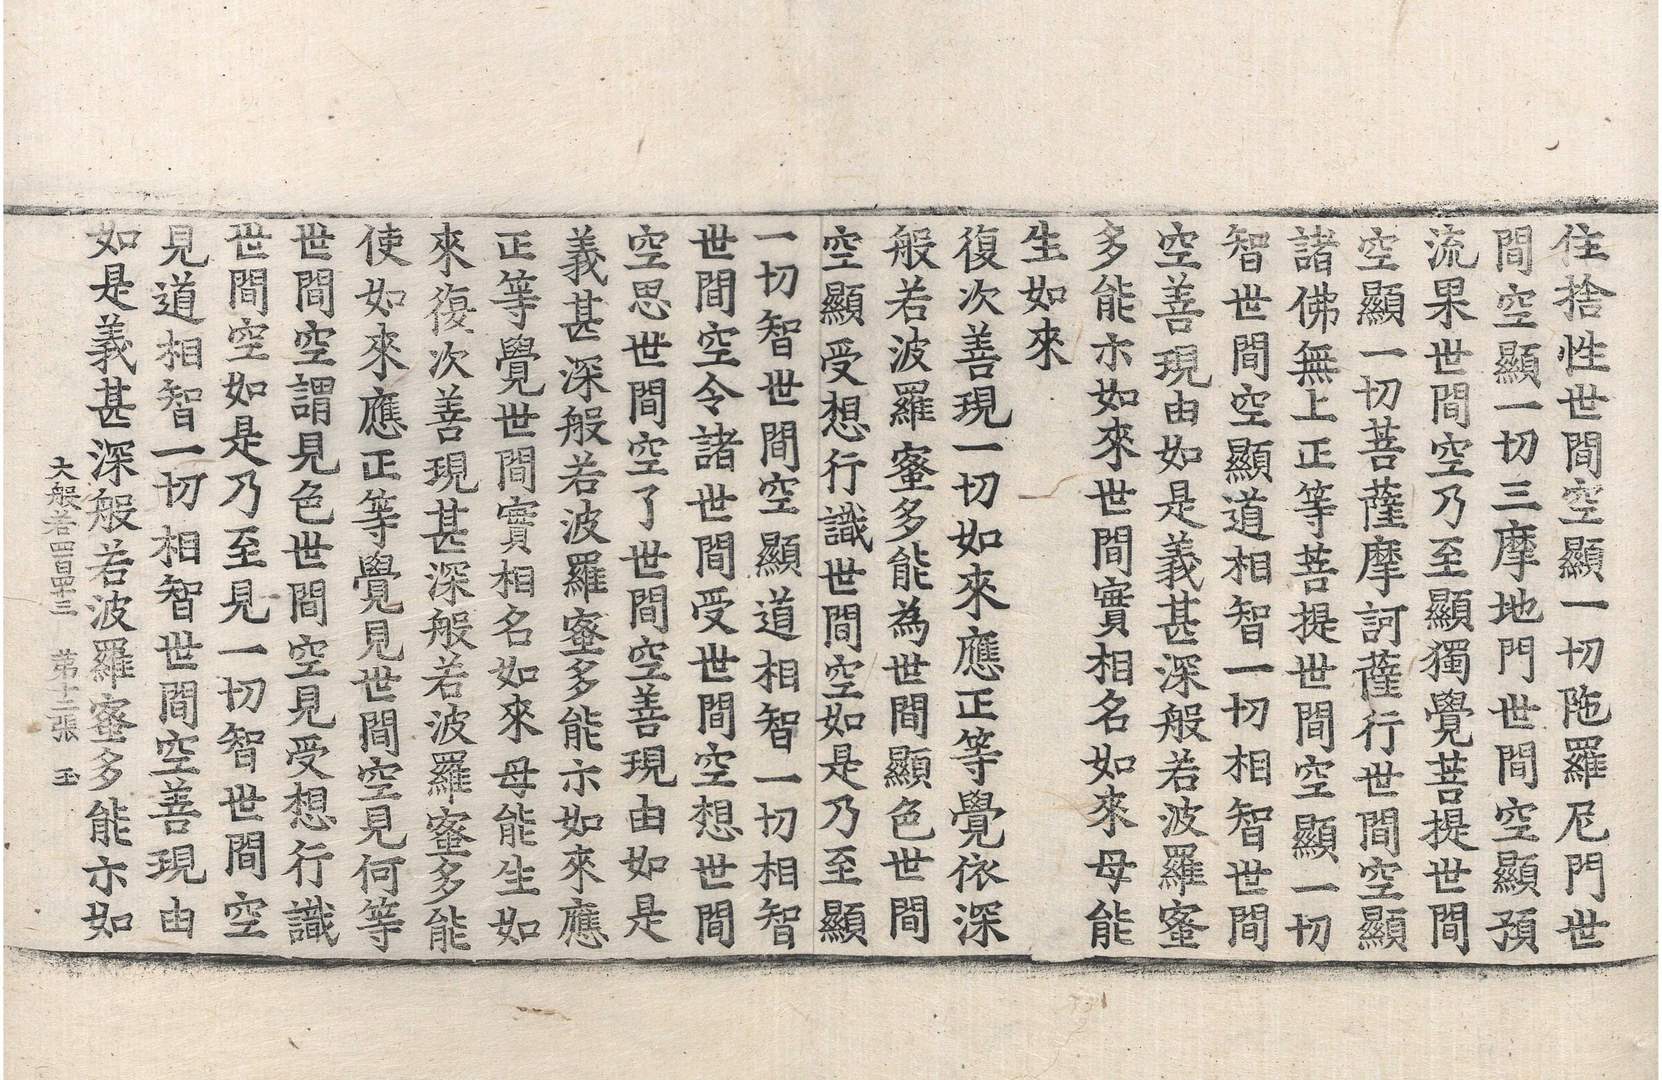 住捨性世間空顯一切陁羅尼門世
間空顯一切三摩地門世間空顯預
流果世間空乃至顯獨覺菩提世間
空顯一切菩薩摩訶薩行世間空顯
諸佛無上正等菩提世間空顯一切
智世間空顯道相智一切相智世間
空善現由如是義甚深般若波羅蜜
多能示如來世間實相名如來母能
生如來
復次善現一切如來應正等覺依深
般若波羅蜜多能為世間顯色世間
空顯受想行識世間空如是乃至顯
一切智世間空顯道相智一切相智
世間空令諸世間受世間空想世間
空思世間空了世間空善現由如是
義甚深般若波羅蜜多能示如來應
正等覺世間實相名如來母能生如
來復次善現甚深般若波羅蜜多能
使如來應正等覺見世間空見何等
世間空謂見色世間空見受想行識
世間空如是乃至見一切智世間空
見道相智一切相智世間空善現由
如是義甚深般若波羅蜜多能示如
大般若四百四十三 第十二張 玉